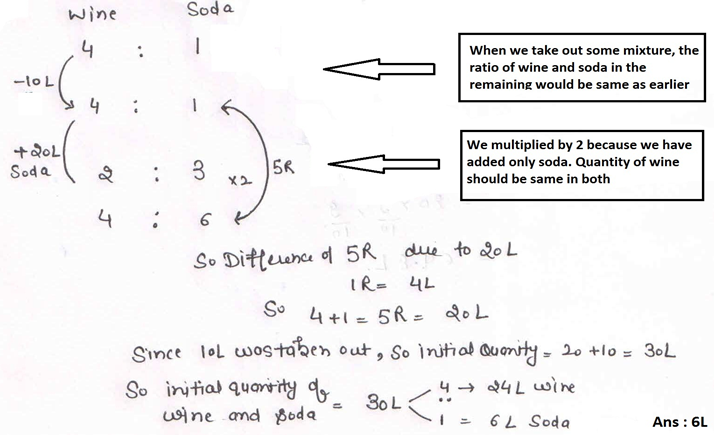 Wine Soda
4 : 1
When we take out some mixture, the
ratio of wine and soda in the
remaining would be same as earlier
-10L
4 : 1
+20L
Soda
2 : 3 x2
5R
We multiplied by 2 because we have
added only soda. Quantity of wine
should be same in both
4 : 6
So Difference of 5R due to 20L
1R = 4L
So 4+1 = 5R = 20L
Since 10L was taken out, So initial Quanity = 20 +10 = 30L
So initial quanity of
wine and soda = 30L
4 → 24L wine
:
1 = 6L Soda
Ans : 6L